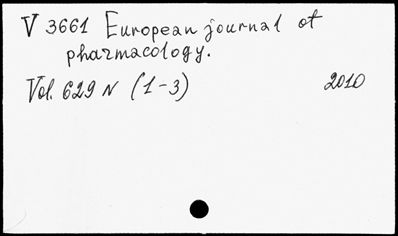 V 3661 European journal of
pharmacology.
Vol. 629 N (1-3) 2010